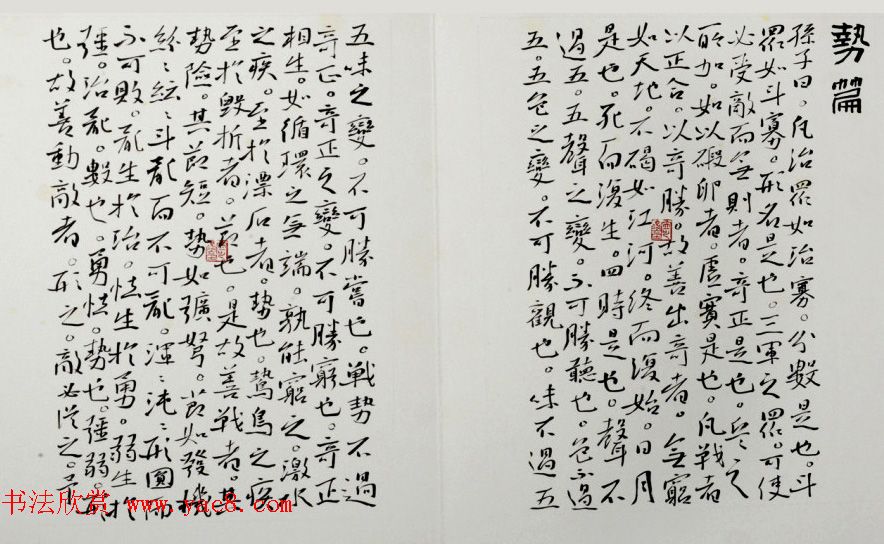 勢篇
孫子曰。凡治眾如治寡。分數是也。斗
眾如斗寡。形名是也。三軍之眾。可使
必受敵而無則者。奇正是也。兵之
所加。如以碬卵者。虛實是也。凡戰者
以正合。以奇勝。故善出奇者。無窮
如天地。不竭如江河。終而復始。日月
是也。死而復生。四時是也。聲不
過五。五聲之變。不可勝聽也。色不過
五。五色之變。不可勝觀也。味不過五
五味之變。不可勝嘗也。戰勢不過
奇正。奇正之變。不可勝窮也。奇正
相生。如循環之無端。孰能窮之。激水
之疾。至於漂石者。勢也。鷙鳥之疾
至於毀折者。節也。是故善戰者。其
勢險。其節短。勢如彍弩。節如發機
紛〻紜〻斗亂而不可亂。渾〻沌〻形圓而
不可敗。亂生於治。怯生於勇。弱生於
彊。治亂。數也。勇怯。勢也。彊弱。形
也。故善動敵者。形之。敵必從之。予
书法欣赏 www.yac8.com